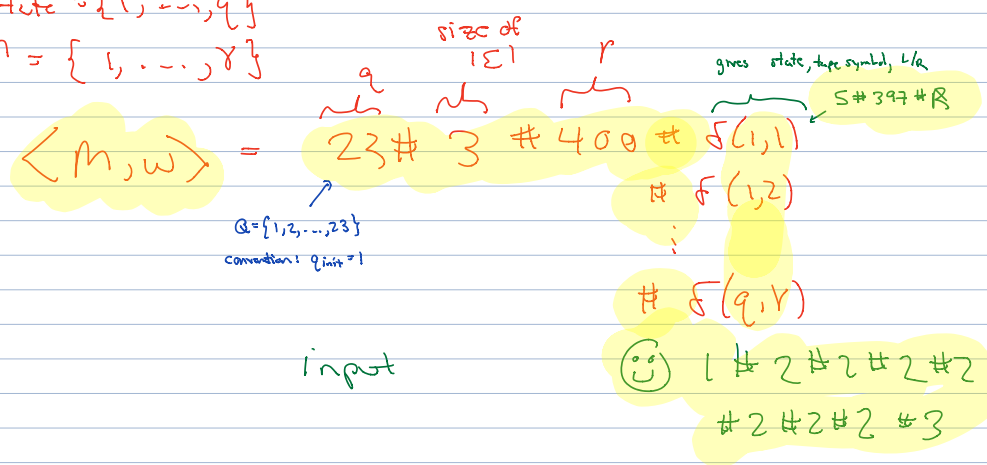 state = {1, ..., q}
= {1, ..., γ}
size of
q |Σ| γ
gives state, tape symbol, L/R
5#397#R
<M,w> = 23# 3 # 400 # δ(1,1)
# δ(1,2)
⋮
Q={1,2,...,23}
convention: q init = 1
# δ(q,γ)
input ☺ 1 # 2 # 2 # 2 # 2
# 2 # 2 # 2 # 3